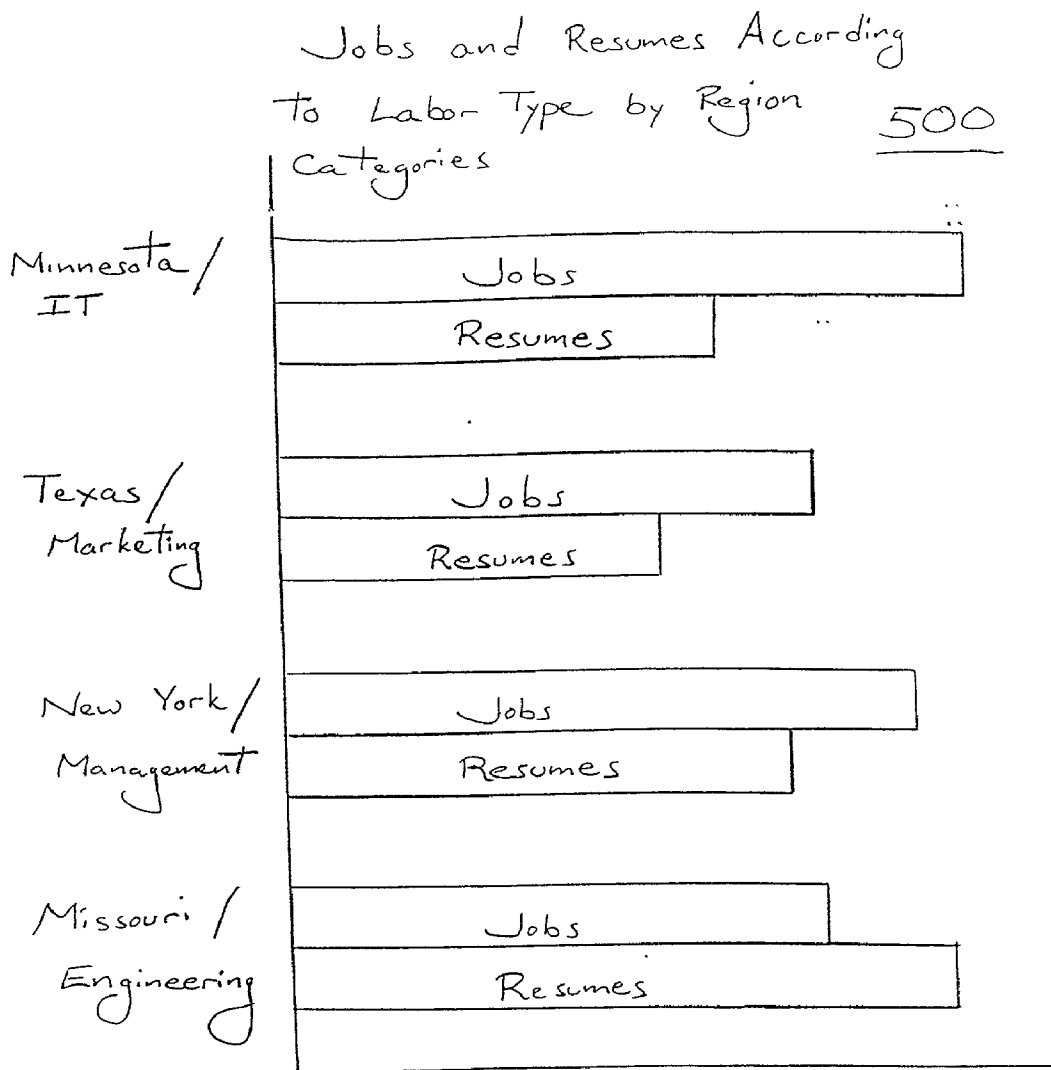 Jobs and Resumes According
To Labor Type by Region
Categories
500
Minnesota/
IT
Jobs
Resumes
Texas/
Marketing
Jobs
Resumes
New York/
Management
Jobs
Resumes
Missouri/
Engineering
Jobs
Resumes